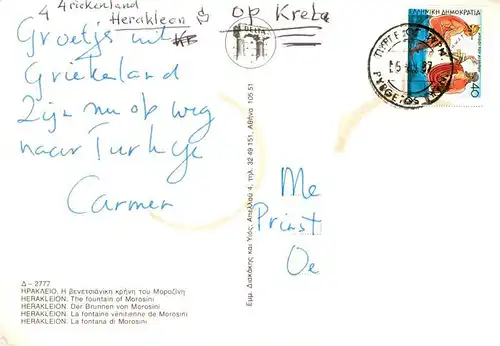 4 Griekenland, Herakleon op Kreta
Groetjes uit
Griekeland
Zijn nu op weg
naar Turkije
Carmen
Me
Prinst
Oe
ΕΛΛΗΝΙΚΗ ΔΗΜΟΚΡΑΤΙΑ
40
DELTA
Εμμ. Διακάκης και Υιός, Απελλού 4, τηλ. 32 49 151, Αθήνα 105 51
Δ – 2777
ΗΡΑΚΛΕΙΟ. Η βενετσιάνικη κρήνη του Μοροζίνη
HERAKLEION. The fountain of Morosini
HERAKLEION. Der Brunnen von Morosini
HERAKLEION. La fontaine vénitienne de Morosini
HERAKLEION. La fontana di Morosini